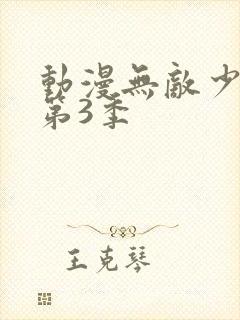 動漫無敵少
第3季
王克琴